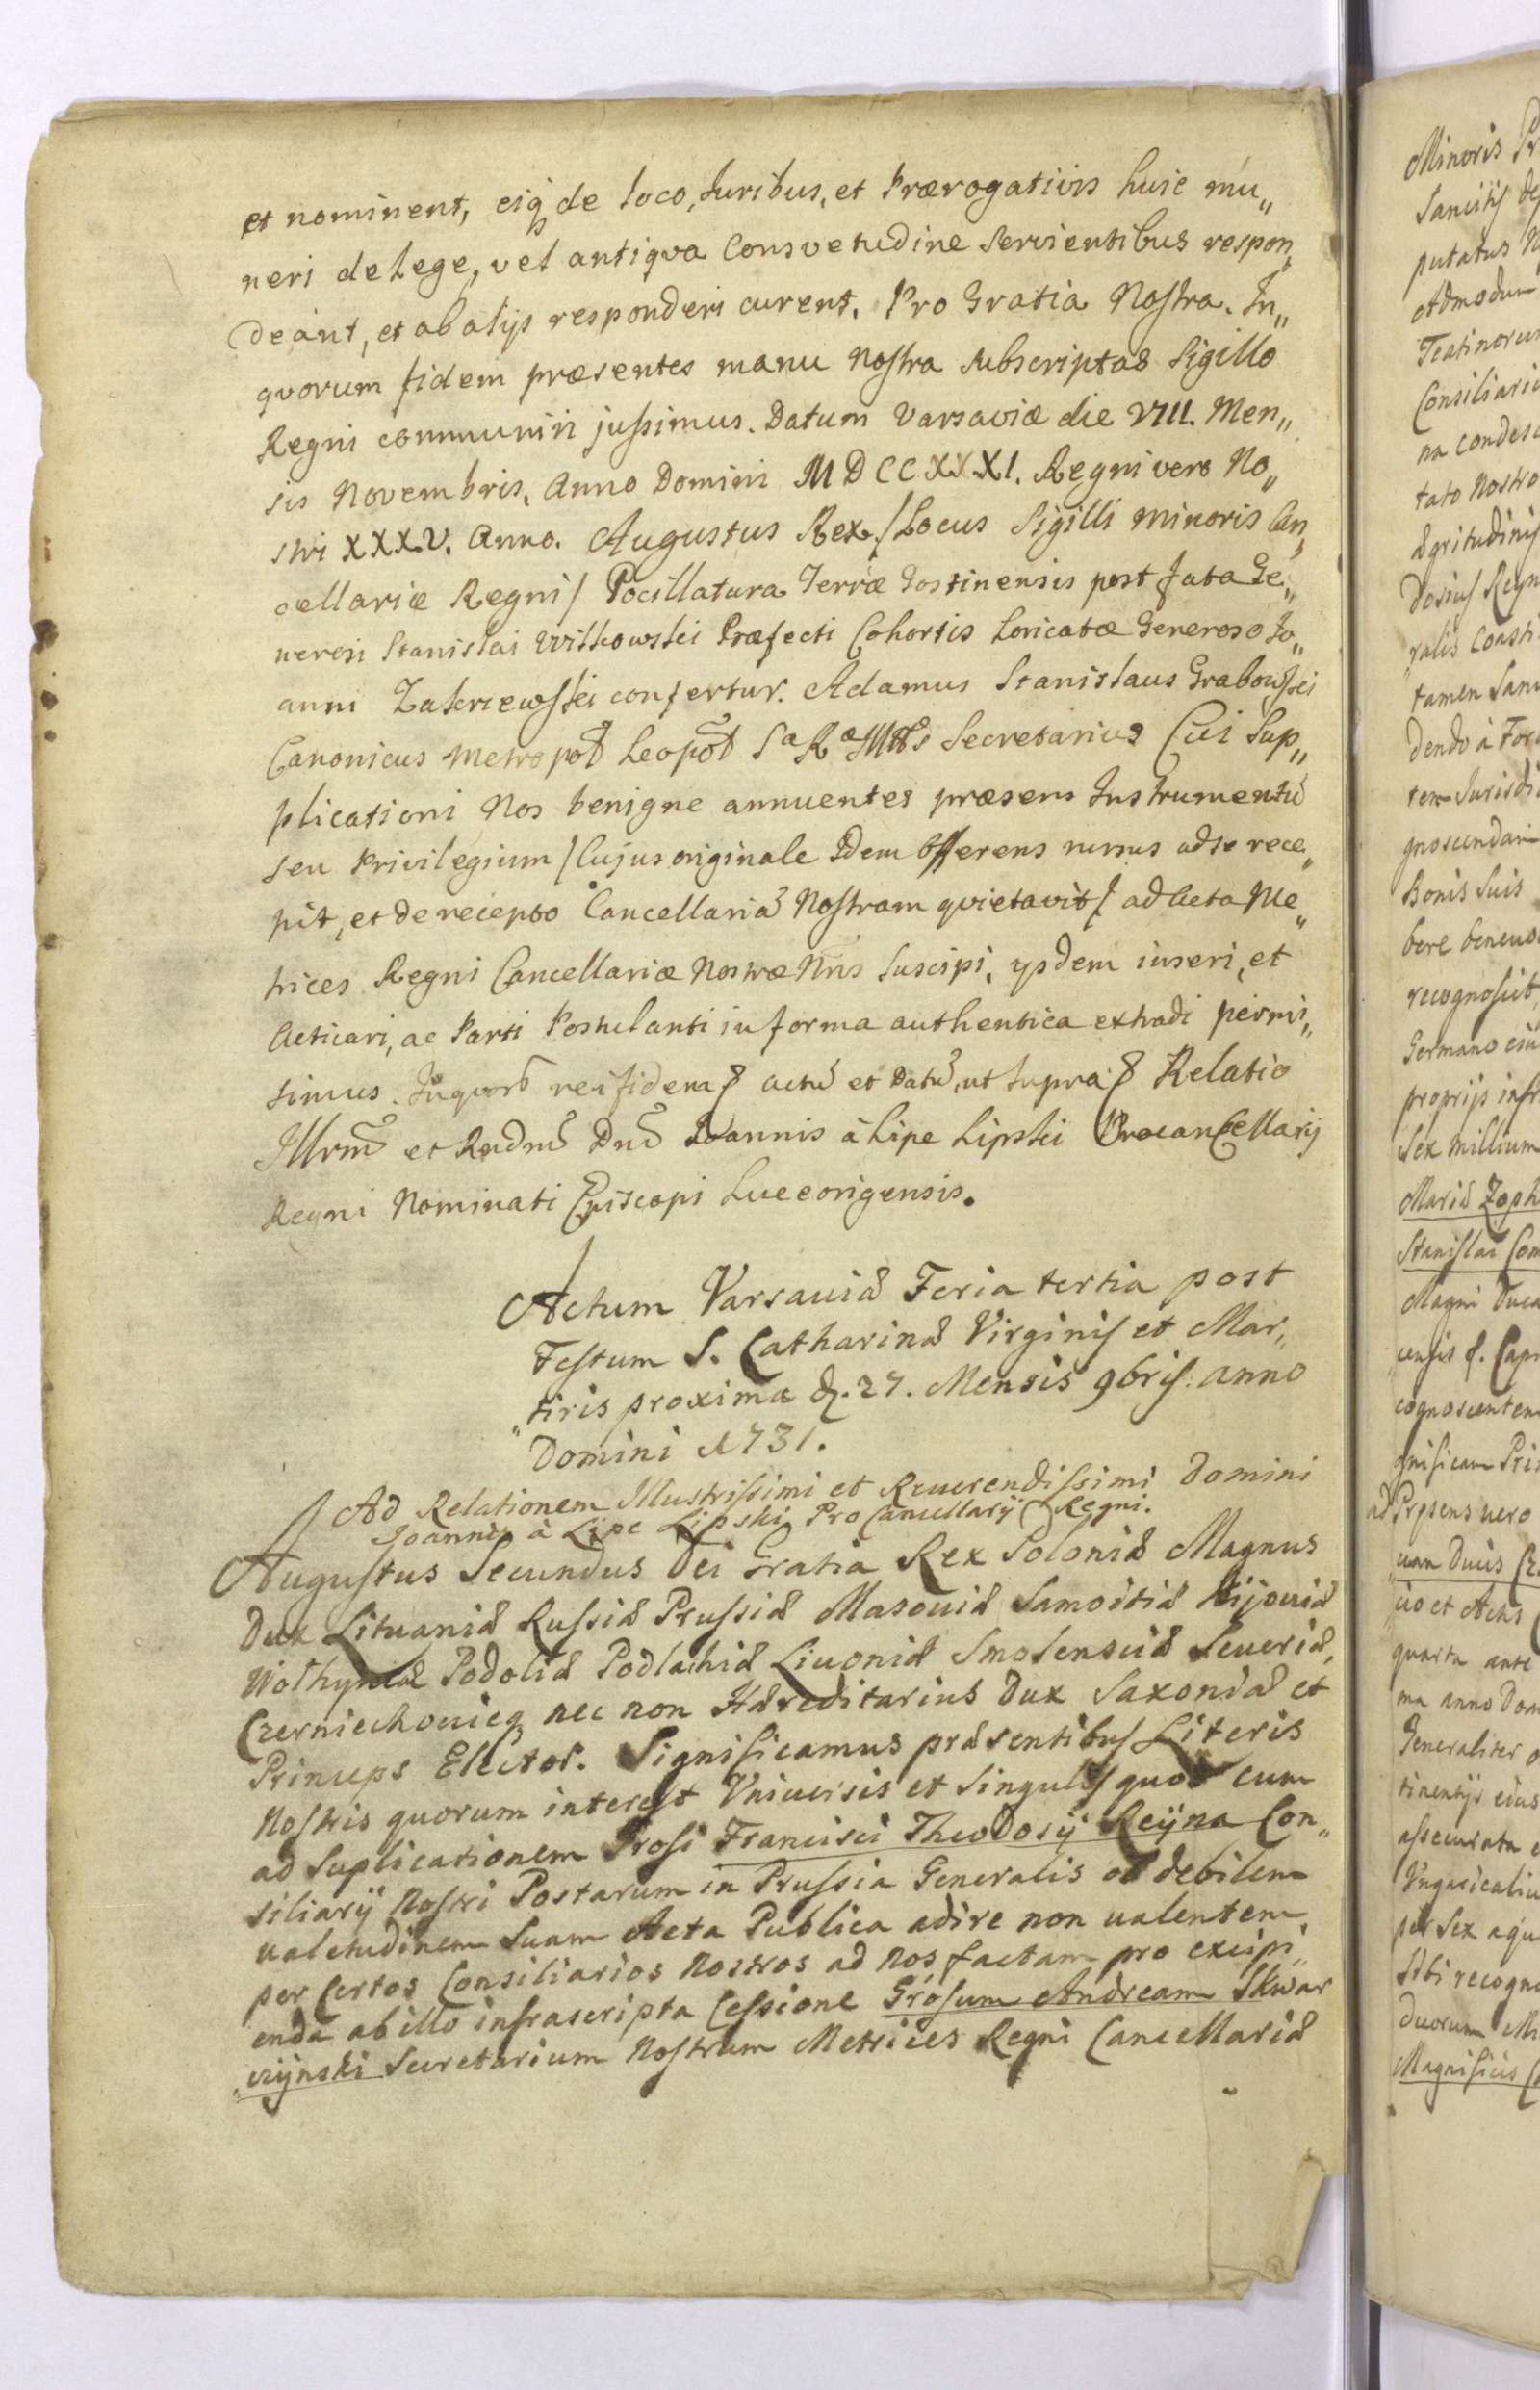 et nominent, eiq de loco, Juribus, et Prærogativis huic mu„
neri de Lege, vel antiqva Consvetudine Servientibus respon„
deant, et ab alijs responderi curent. Pro Gratia Nostra. In„
qvorum fidem præsentes manu Nostra subscriptas Sigillo
Regni communiri jussimus. Datum Varsaviæ die VIII. Men„
sis Novembris, Anno Domini MDCCXXXI. Regni vero No„
stri XXXV. Anno. Augustus Rex / Locus Sigilli minoris Can„
cellariæ Regni / Pocillatura Terræ Gostinensis post fata Ge„
nerosi Stanislai Witkowski Præfecti Cohortis Loricatæ Generoso Jo„
anni Zakrzewski confertur. Adamus Stanislaus Grabowski
Canonicus Metropol Leopol S R Mtis Secretarius Cui Sup„
plicationi Nos benigne annuentes præsens Instrumentũ
seu Privilegium / Cujus originale Idem Offerens rursus ad se rece„
pit, et de recepto Cancellariã Nostram qvietavit / ad Acta Me„
trices Regni Cancellariæ Nostræ Mris Suscipi, ysdem inseri, et
Acticari, ac Parti Postulanti in forma authentica extradi permi„
simus. In quorũ rei fidem Actũ et Datũ, ut supra Relatio
Illrmĩ et Rndmĩ Dnĩ Joannis à Lipe Lipski Procancellarij
Regni Nominati Episcopi Luceorigensis.
Actum Varsauiæ Feria tertia post
Festum S. Catharinæ Virginis et Mar„
„tiris proxima d. 27. Mensis 9bris. anno
Domini 1731.
Ad Relationem Illustrissimi et Reuerendissimi Domini
Joannis à Lipe Lipski Pro Cancellarij Regni.
Augustus Secundus Dei Gratia Rex Poloniæ Magnus
Dux Lituaniæ Russiæ Prussiæ Masouiæ Samoitiæ Kijouiæ
Wolhyniæ Podoliæ Podlachiæ Liuoniæ Smolensciæ Seueriæ,
Czerniechouieq nec non Hæreditarius Dux Saxoniæ et
Princeps Elector. Significamus præsentibus Literis
Nostris quorum interest Vniuersis et Singulis quod cum
ad Suplicationem Grosi Francisci Theodosij Reijna Con„
siliarij Nostri Postarum in Prussia Generalis ob debilem
ualetudinem Suam Acta Publica adire non ualentem,
per Certos Consiliarios Nostros ad Nos factam pro excipi„
enda ab illo infrascripta Cessione Grosum Andream Skwar
„czijnski Secretarium Nostrum Metrices Regni Cancellariæ
Minoris
Sancitis
putatus
Admodum
Teatinorum
Consiliari
na condes
tato Nostro
ægritudinis
dosius Reyn
ralis Consti
tamen
dendo à For
ter Jurisdi
gnoscendam
Bonis Suis
bere beneuo
recognoscit
Germano
proprijs infr
Sex Millium
Mariæ Zoph
Stanislai Com
Magni Duca
censis
cognoscentem
gnificam Pri
ad Præsens uero
uam Ducis
uo et Actis
quarta ante
ma anno Dom
Generaliter
tinentijs
assecurata
Vngaricaliu
per Sex
sibi recogno
duorum Mi
Magnificis